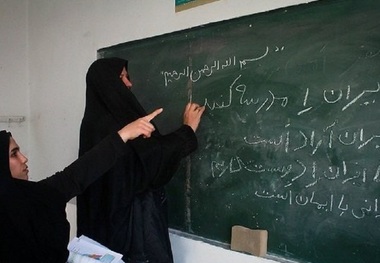 بسم الله الرحمن الرحیم
یران را مدرسه کنید
یران آزاد است
ایران را دوست داریم
با ایمان است